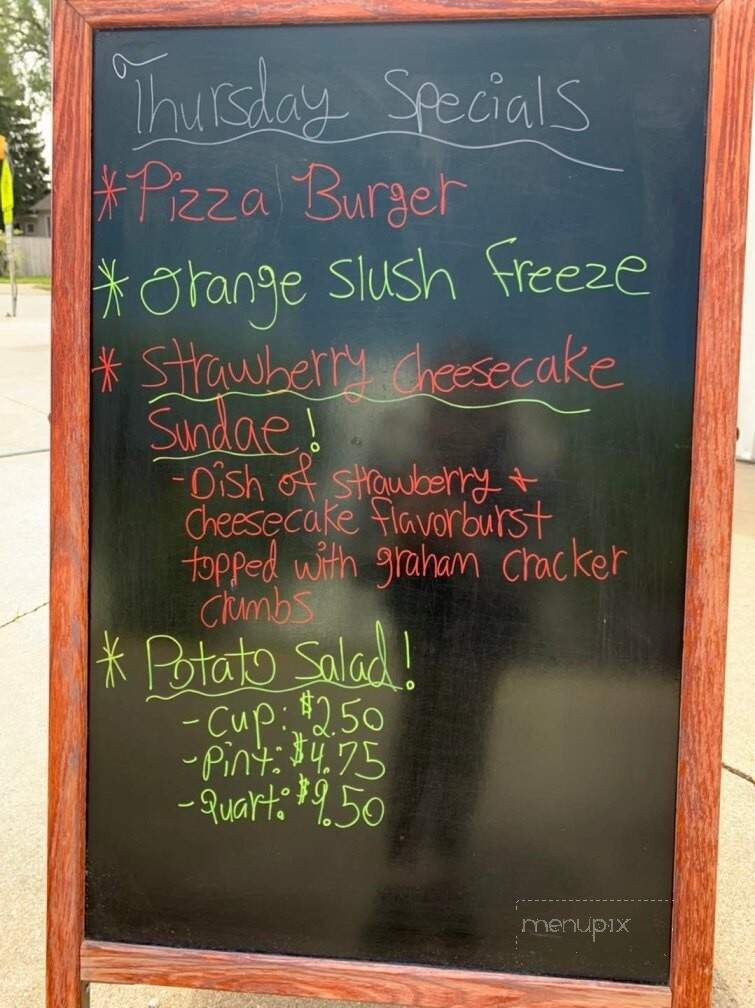 Thursday Specials
* Pizza Burger
* Orange Slush Freeze
* Strawberry Cheesecake
Sundae!
- Dish of strawberry &
cheesecake flavorburst
topped with graham cracker
crumbs
* Potato Salad!
- Cup: $2.50
- Pint: $4.75
- Quart: $9.50
menupix